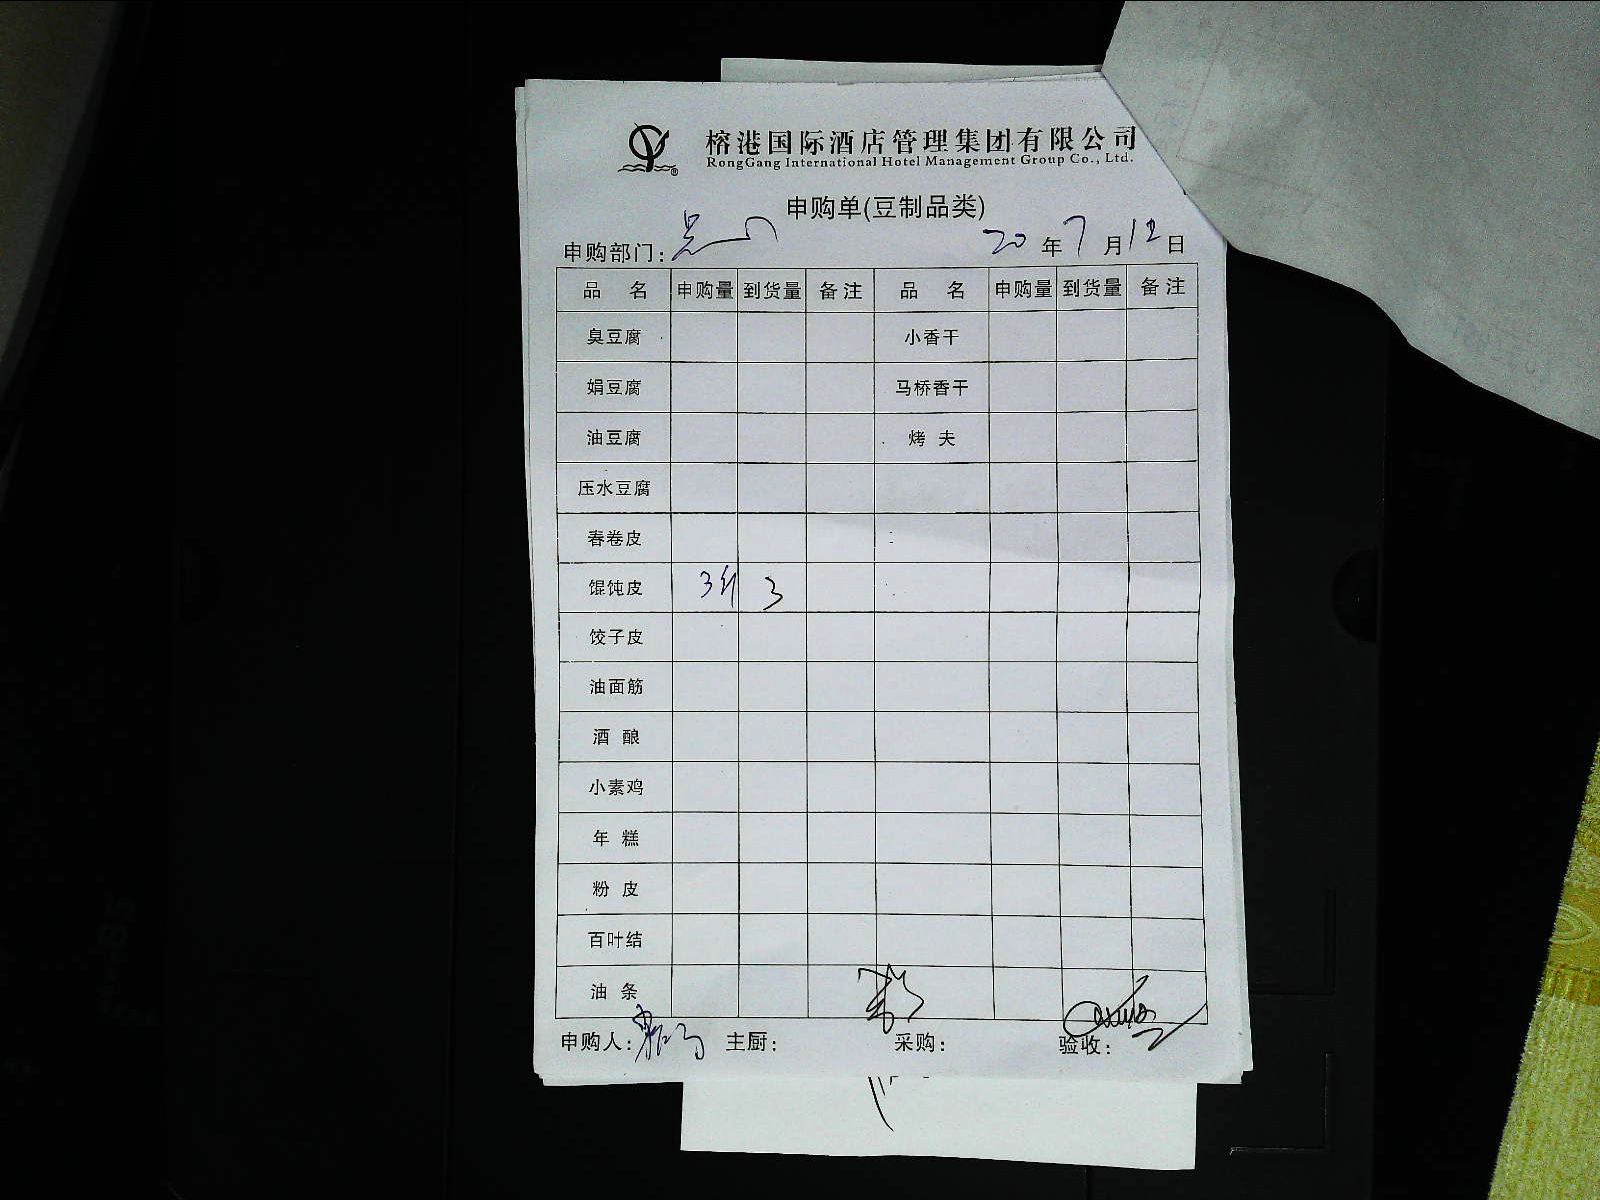 榕港国际酒店管理集团有限公司
RongGang International Hotel Management Group Co., Ltd.
申购单(豆制品类)
申购部门: 20 年 7 月 12 日
品 名 申购量 到货量 备注 品 名 申购量 到货量 备注
臭豆腐 小香干
娟豆腐 马桥香干
油豆腐 烤 夫
压水豆腐
春卷皮
馄饨皮 3斤 3
饺子皮
油面筋
酒 酿
小素鸡
年 糕
粉 皮
百叶结
油 条
申购人: 主厨: 采购: 验收: